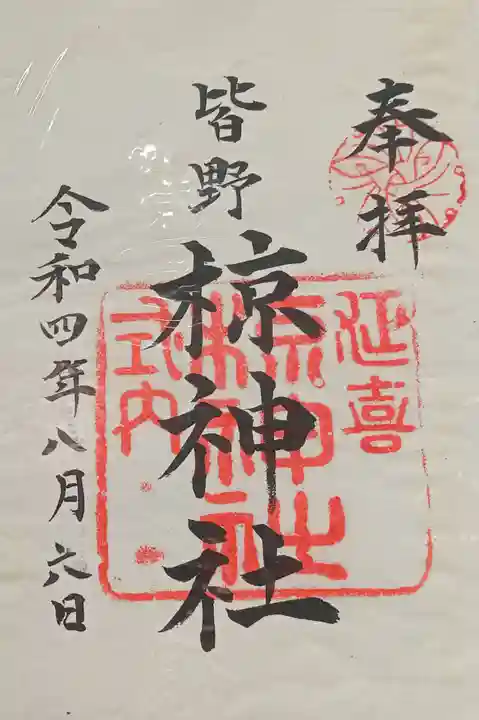 奉拝
延喜
皆野
椋神社
椋神社
式内
令和四年八月六日